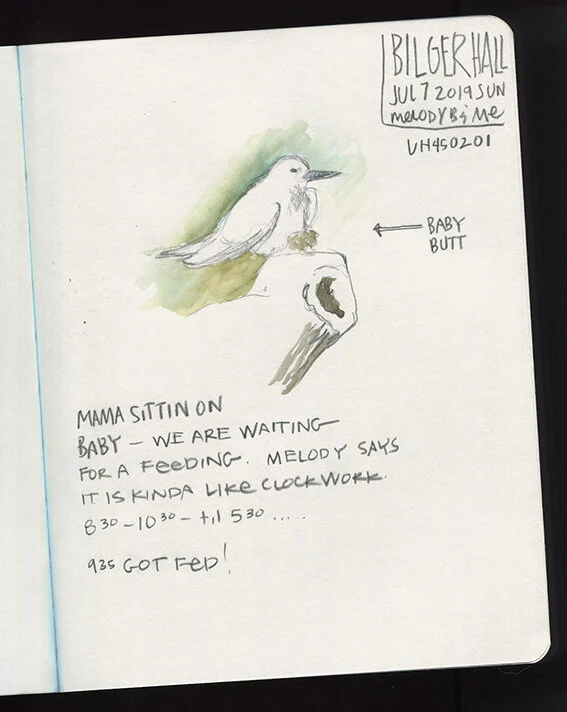 BILGER HALL
JUL 7 2019 SUN
MELODY B; ME
VH450201
BABY
BUTT
MAMA SITTIN ON
BABY – WE ARE WAITING
FOR A FEEDING. MELODY SAYS
IT IS KINDA LIKE CLOCKWORK.
8 30 – 10 30 – til 5 30 .....
935 GOT FED!